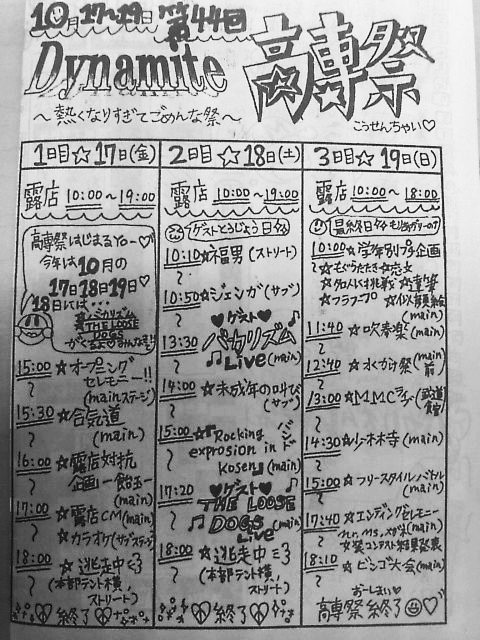 10月17~19日 第44回
Dynamite 高専祭
~熱くなりすぎてごめんな祭~
こうせんちゃい♡
1日目☆17日(金)
露店 10:00~19:00
高専祭はじまるYo~♡
今年は10月の
17日18日19日♡
18日には…
バカリズム
THE LOOSE
DOGS
15:00☆オープニング
セレモニー!!
(mainステージ)
15:30☆合気道
(main)
16:00☆露店対抗
企画
(main)
17:00☆露店CM(main)
☆カラオケ(サブステージ)
18:00☆逃走中
(本部テント横,
ストリート)
終了
2日目☆18日(土)
露店 10:00~19:00
ゲストとうじょう日
10:10☆福男(ストリート)
10:50☆ジェンガ(サブ)
♥ゲスト♥
13:30 バカリズム
Live(main)
14:00☆未成年の叫び
(サブ)
15:00☆『Rocking
exprosion in
Kosen』(main)
バンド
17:20 ♥ゲスト♥
THE LOOSE
DOGS
Live(main)
18:00☆逃走中
(本部テント横,
ストリート)
終了
3日目☆19日(日)
露店 10:00~18:00
最終日
10:00☆学年別プチ企画
☆フラフープ
(main)
11:40☆吹奏楽
(main)
12:40☆オくガ祭(main前)
13:00☆MMCライブ(武道館)
14:30☆少林寺(main)
15:00☆フリースタイルバトル
(main)
17:40☆エンディングセレモニー
女装コンテスト結果発表
18:10☆ビンゴ大会(main)
おーしまい♡
高専祭 終了